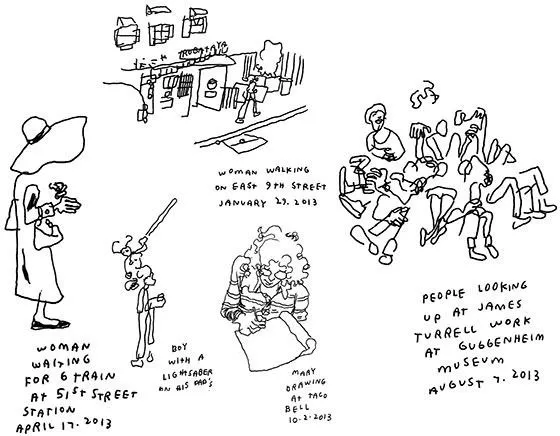 WOMAN WALKING
ON EAST 9TH STREET
JANUARY 29. 2013
WOMAN
WAITING
FOR 6 TRAIN
AT 51ST STREET
STATION
APRIL 17. 2013
BOY
WITH A
LIGHTSABER
ON HIS DAD'S
MARY
DRAWING
AT TACO
BELL
10-2-2013
PEOPLE LOOKING
UP AT JAMES
TURRELL WORK
AT GUGGENHEIM
MUSEUM
AUGUST 7. 2013